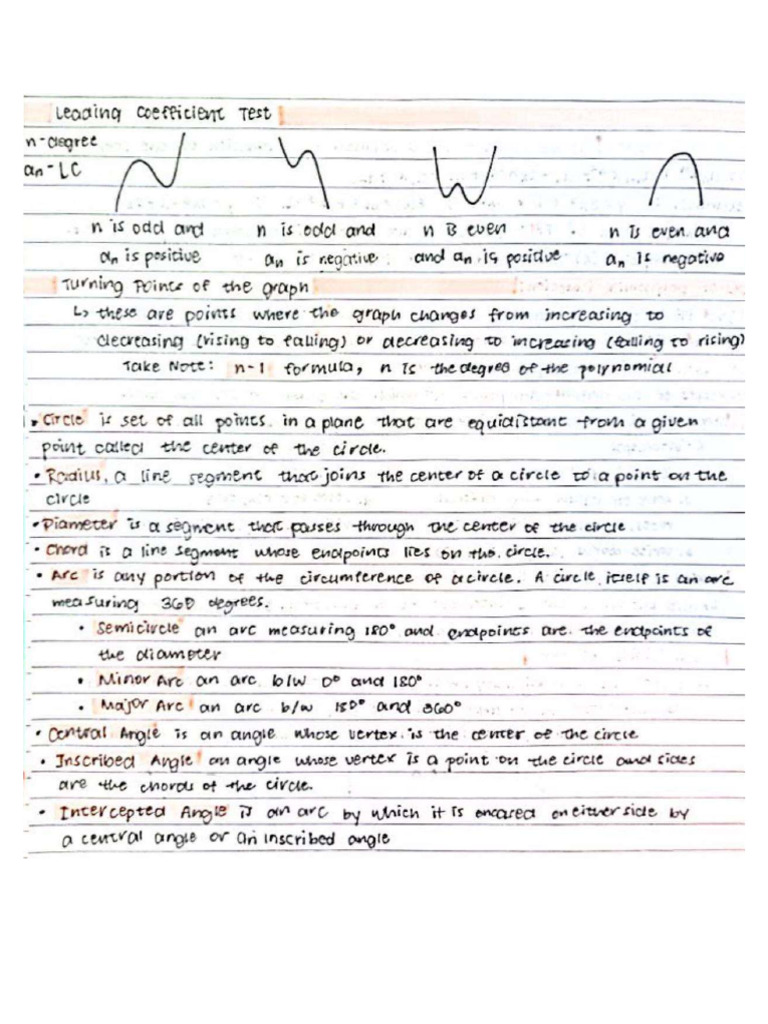 Leading Coefficient Test
n - degree
an - LC
n is odd and n is odd and n is even n is even and
an is positive an is negative and an is positive an is negative
Turning Points of the graph
↳ these are points where the graph changes from increasing to
decreasing (rising to falling) or decreasing to increasing (falling to rising)
Take Note: n-1 formula, n is the degree of the polynomial
• Circle is set of all points in a plane that are equidistant from a given
point called the center of the circle.
• Radius, a line segment that joins the center of a circle to a point on the
circle
• Diameter is a segment that passes through the center of the circle
• Chord is a line segment whose endpoints lies on the circle.
• Arc is any portion of the circumference of a circle. A circle itself is an arc
measuring 360 degrees.
• Semicircle an arc measuring 180° and endpoints are the endpoints of
the diameter
• Minor Arc an arc b/w 0° and 180°
• Major Arc an arc b/w 180° and 360°
• Central Angle is an angle whose vertex is the center of the circle
• Inscribed Angle an angle whose vertex is a point on the circle and sides
are the chords of the circle.
• Intercepted Angle is an arc by which it is encased on either side by
a central angle or an inscribed angle